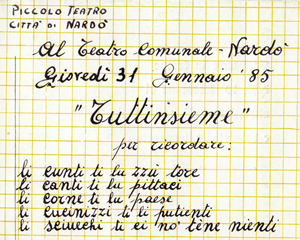 PICCOLO TEATRO
CITTÀ DI NARDÒ
Al Teatro Comunale - Nardò
Giovedì 31 Gennaio '85
"Tuttinsieme"
per ricordare:
li cunti ti lu zzù tore
li canti ti lu pittaci
li corne ti lu paese
li cucinizzi ti li putienti
li sciucchi ti ci no' tene nienti